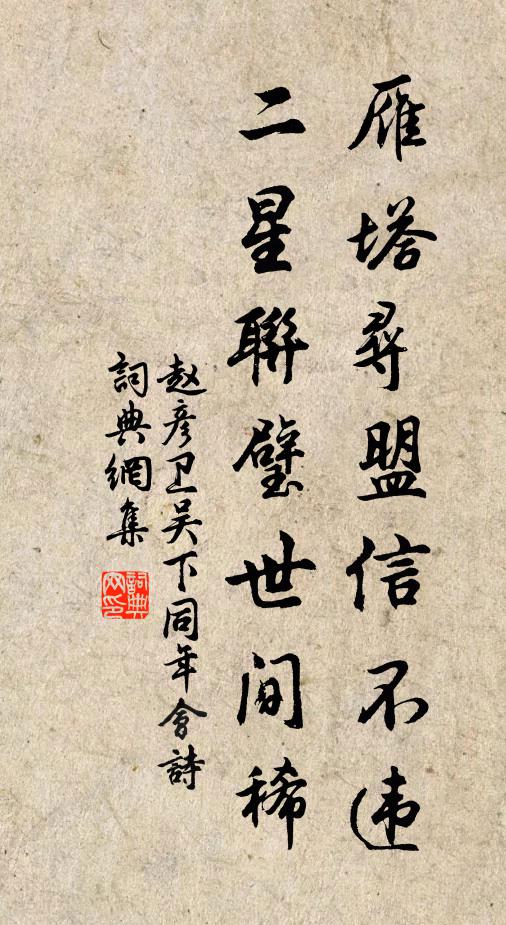 雁塔尋盟信不违
二星聯璧世間稀
赵彦卫吴下同年會詩
詞典網集
詞典网印